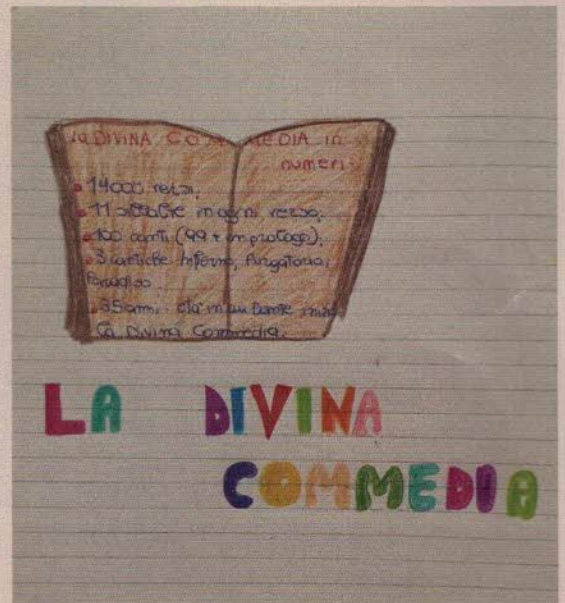 La DIVINA COMMEDIA in
numeri:
14000 versi;
11 sillabe in ogni verso;
100 canti (99 + un prologo);
3 cantiche Inferno, Purgatorio,
Paradiso.
35 anni età in cui Dante inizia
la Divina Commedia.
LA DIVINA
COMMEDIA